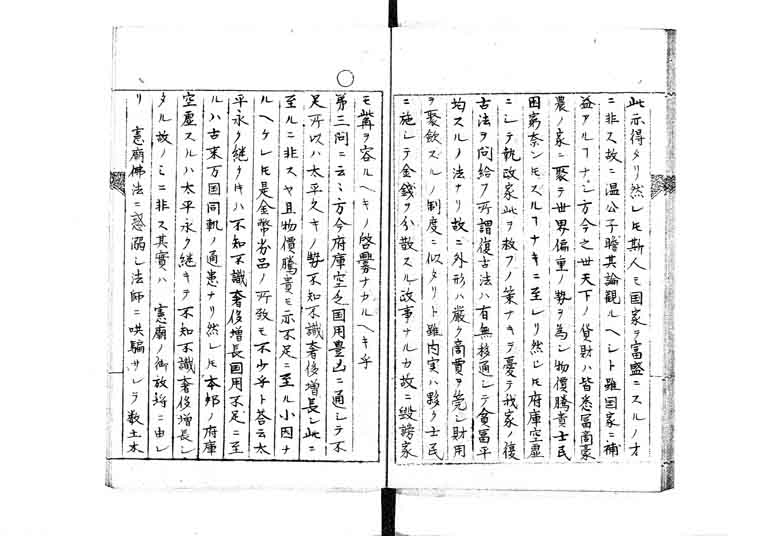 此示得タリ然レ𪜈斯人モ国家ヲ富盛ニスルノオ
ニ非ス故ニ温公子瞻其論観ルヘシト雖国家ニ補
益アルヿナシ方今之世天下ノ貨財ハ皆悉冨商豪
農ノ家ニ聚テ世界偏重ノ勢ヲ為シ物價騰貴士民
困窮奈ン𪜈スルヿナキニ至レリ然レ𪜈府庫空虚
ニシテ執政家此ヲ救フノ策ナキヲ憂テ我家ノ復
古法ヲ問給フ所謂復古法ハ有無移通シテ貪冨平
均スルノ法ナリ故ニ外形ハ厳ク商賈ヲ筦シ財用
ヲ聚斂スルノ制度ニ似タリト雖内実ハ夥ク士民
ニ施シテ金錢ヲ分散スル故事ナルカ故ニ毀謗家
モ觜ヲ容ルヘキノ啓釁ナカルヘキ乎
○
第三問ニ云ニ方今府庫空乏国用豊己ニ通シテ不
足所以ハ太平久キノ勢不知不識奢侈増長シ此ニ
至ルニ非スヤ且物價騰貴モ示不足ニ至ル小因ナ
ルヘケレ𪜈是金幣劣品ノ所致モ不少乎ト答云太
平永ク継クキハ不知不識奢侈増長国用不足ニ至
ルハ古来万国同軌ノ通患ナリ然レ𪜈本邦ノ府庫
空虚スルハ太平永ク継キテ不知不識奢侈増長シ
タル故ノミニ非ス其實ハ　憲廟ノ御放埓ニ由レ
リ　憲廟佛法ニ惑溺シ法師ニ哄騙サレテ数土木